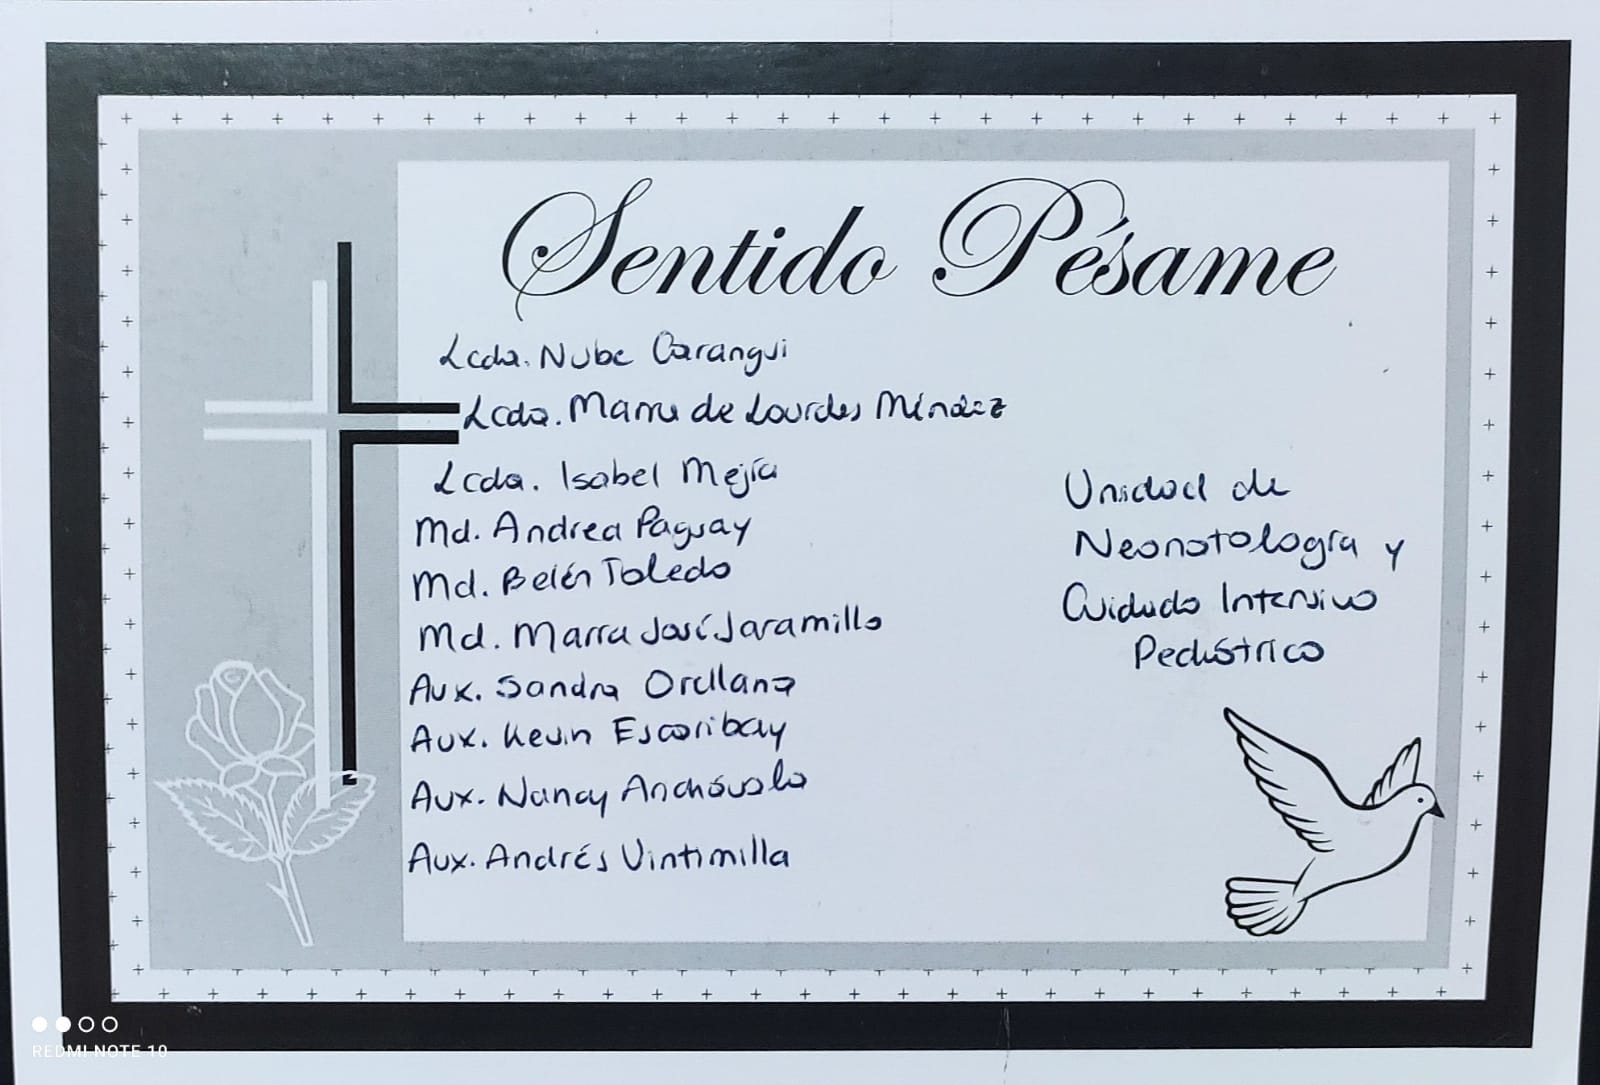 Sentido Pésame
Lcda. Nube Carangui
Lcda. María de Lourdes Méndez
Lcda. Isabel Mejía
Md. Andrea Paguay
Md. Belén Toledo
Md. María José Jaramillo
Aux. Sandra Orellana
Aux. Kevin Escaribay
Aux. Nancy
Aux. Andrés Vintimilla
Unidad de
Neonatología y
Cuidado Intensivo
Pediátrico
REDMI NOTE 10